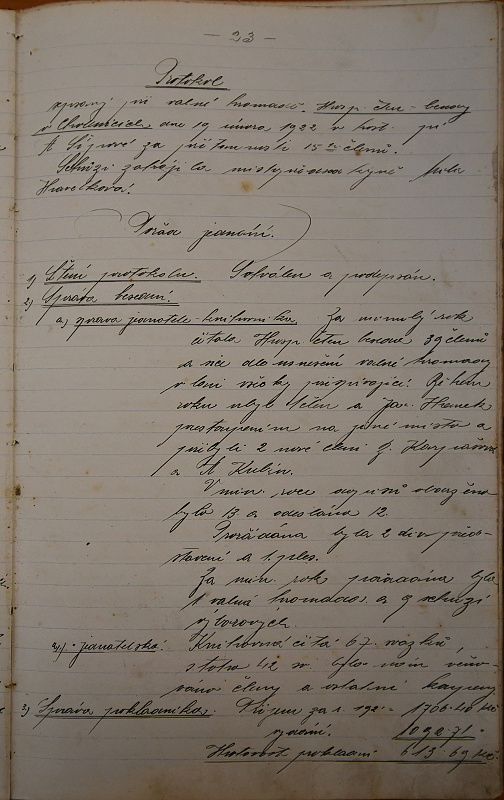 — 23 —
Protokol
sepsaný při valné hromadě Hosp. čten. besedy
v Cholenicích dne 19 února 1922 v host. pí
A. Šípové za přítomnosti 15ti členů.
Schůzi zahájila místopředsedkyně
Havelková.
Pořad jednání.
1) Čtení protokolu. Schválen a podepsán.
2) Zpráva besední.
a) zpráva jednatele-knihovníka. Za minulý rok
čítala Hosp. čten. beseda 39 členů
a sice dle usnesení valné hromady
v loni všichny přispívající. Během
roku ubyl 1 člen a Jar. Hanek
přestoupením na jiné místo a
přibyli 2 noví členi J.
a A. Kulín.
V min. roce dopisů obdrženo
bylo 13 a odesláno 12.
Pořádána byla 2 div. před-
stavení a 1 ples.
Za min. rok pořádána byla
1 valná hromada a 9 schůzí
výborových.
jednatelská. Knihovna čítá 67 svazků,
z toho 42 sv. bylo nám věno-
váno členy a ostatní koupeny
3) Zpráva pokladníka. Příjem za r. 1921 – 1706.40 Kč
vydání. 1092.71 "
Hotovost pokladní 613.69 Kč.